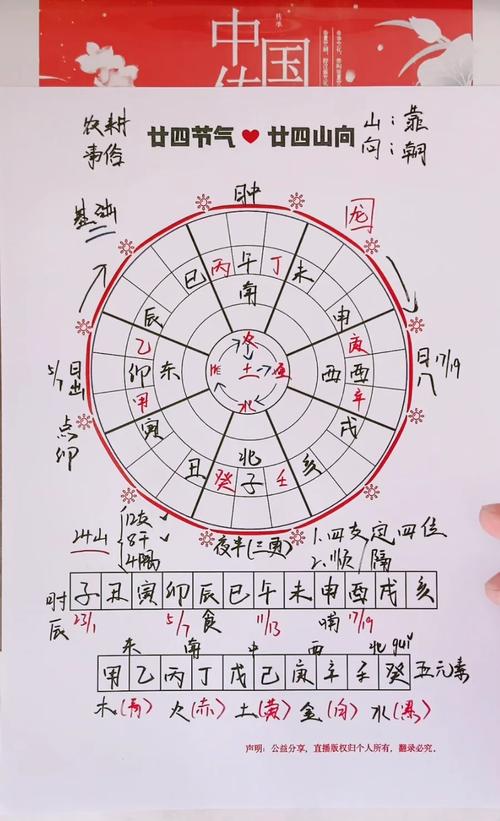 中国
农耕
事俗
廿四节气❤廿四山向
山：靠
向：朝
基础
日中
龙
巳丙午丁未
南
辰
申
乙
卯
甲
东
火
木土金
水
西
庚
酉
辛
5/7日出
点卯
日入17/19
寅
戌
北
丑癸子壬亥
24山
12支✓
8干✓
4隅
夜半(三更)
1.四支定四位
2.顺 隔
时辰
子丑寅卯辰巳午未申酉戌亥
23/1 5/7 食 11/13 哺 17/19
东 南 中 西 北 guǐ
甲乙丙丁戊己庚辛壬癸 五元素
木(青) 火(赤) 土(黄) 金(白) 水(黑)
声明：公益分享，直播版权归个人所有，翻录必究。